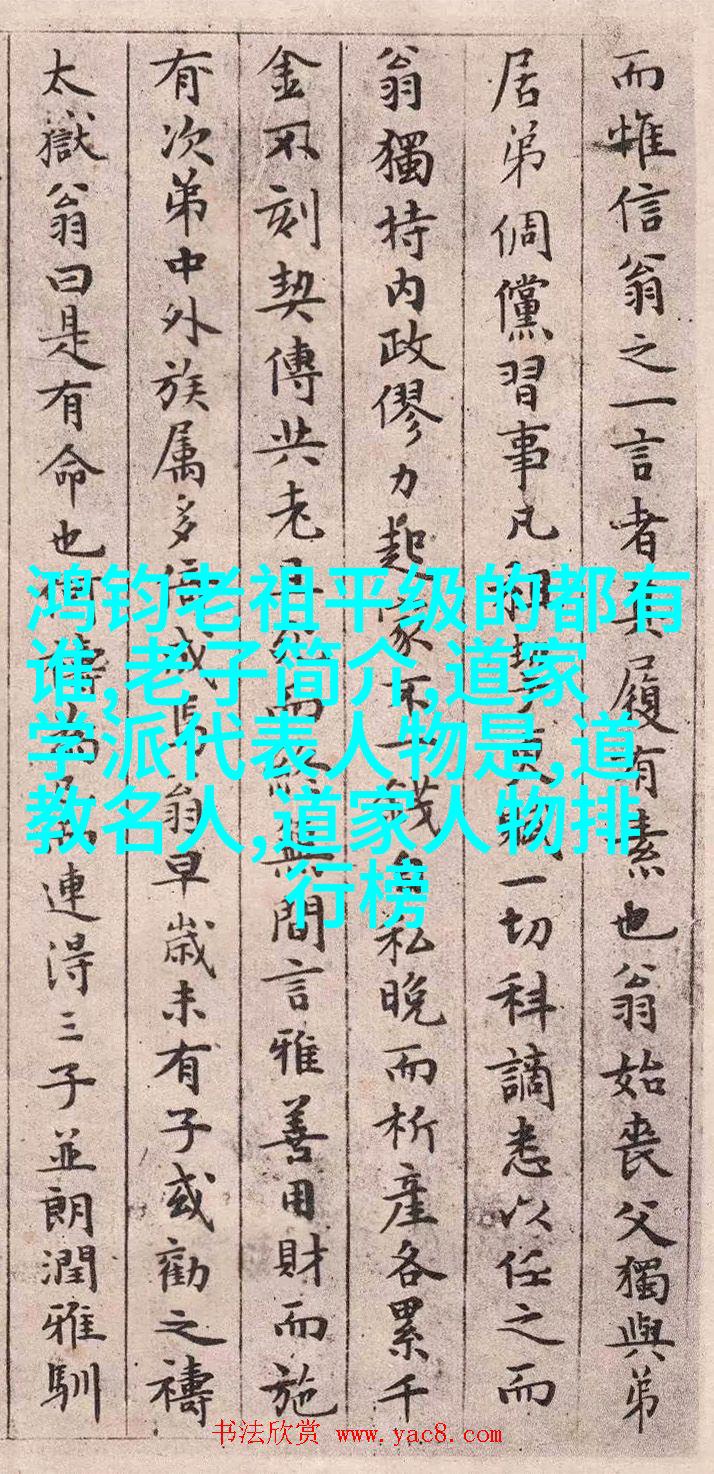 而惟信翁之一言者其履有素也翁始喪父獨與弟
居弟倜儻習事凡租契更賦一切科謫悉以任之而
翁獨持内政僇力起家不一錢自私晚而析產各累千
金不刻契傳共老且終而族無間言雅善用財而施
有次弟中外族属多倚成焉翁早歲未有子或勸之禱
太嶽翁曰是有命也連得三子並朗潤雅馴
鸿钧老祖平级的都有
谁,老子简介,道家
学派代表人物是,道
教名人,道家人物排
行榜
书法欣赏 www.yac8.com